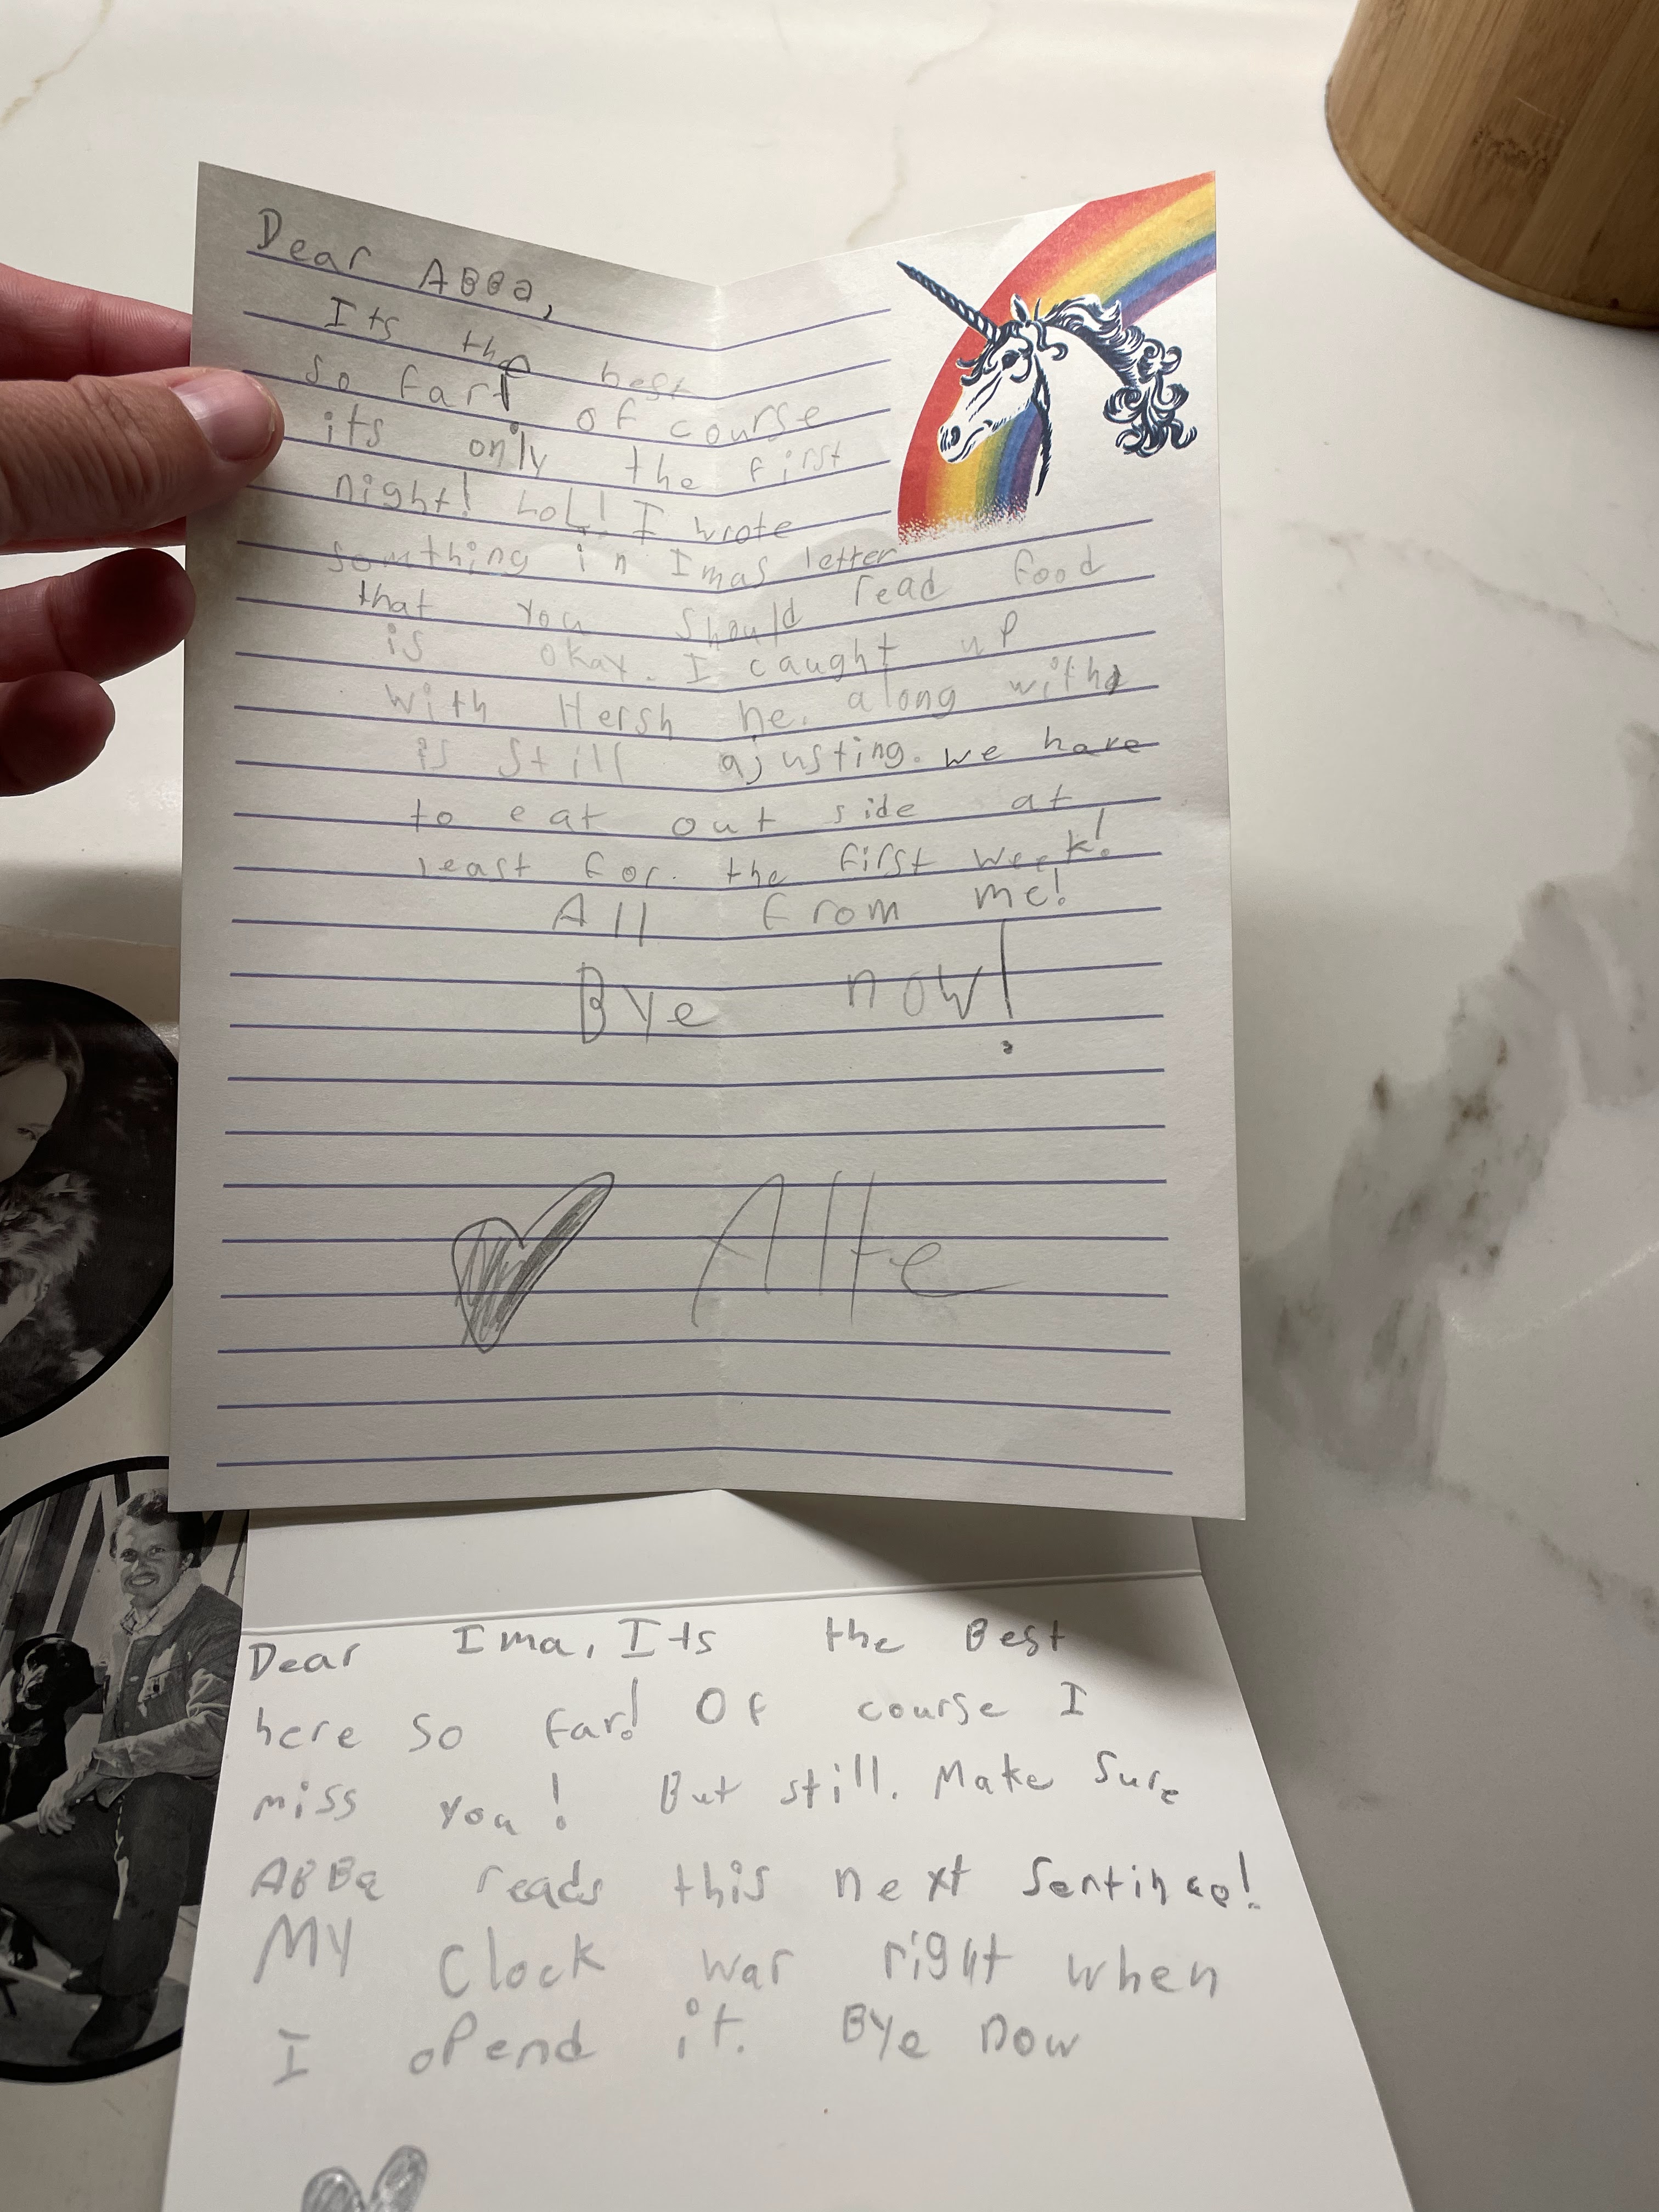 Dear ABBa,
Its the best
so far! of course
its only the first
night! LoL! I wrote
somthing in Imas letter
that you should read food
is okay. I caught up
with Hersh he. along with
is still ajusting. we have
to eat out side at
least for. the first week!
All from me!
Bye now!
Alte
Dear Ima, Its the Best
here so far! Of course I
miss you! But still. Make sure
ABBa reads this next sentince!
My Clock war right when
I opend it. Bye now